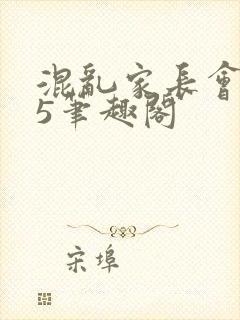 混亂家長會
5筆趣閣
宋埠